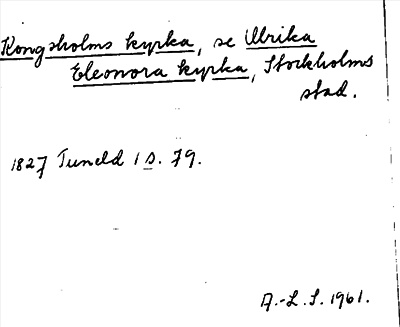 Kongsholms kyrka, se Ulrika
Eleonora kyrka, Stockholms
stad.
1827 Tuneld 1 s. 79.
A.-L. S. 1961.